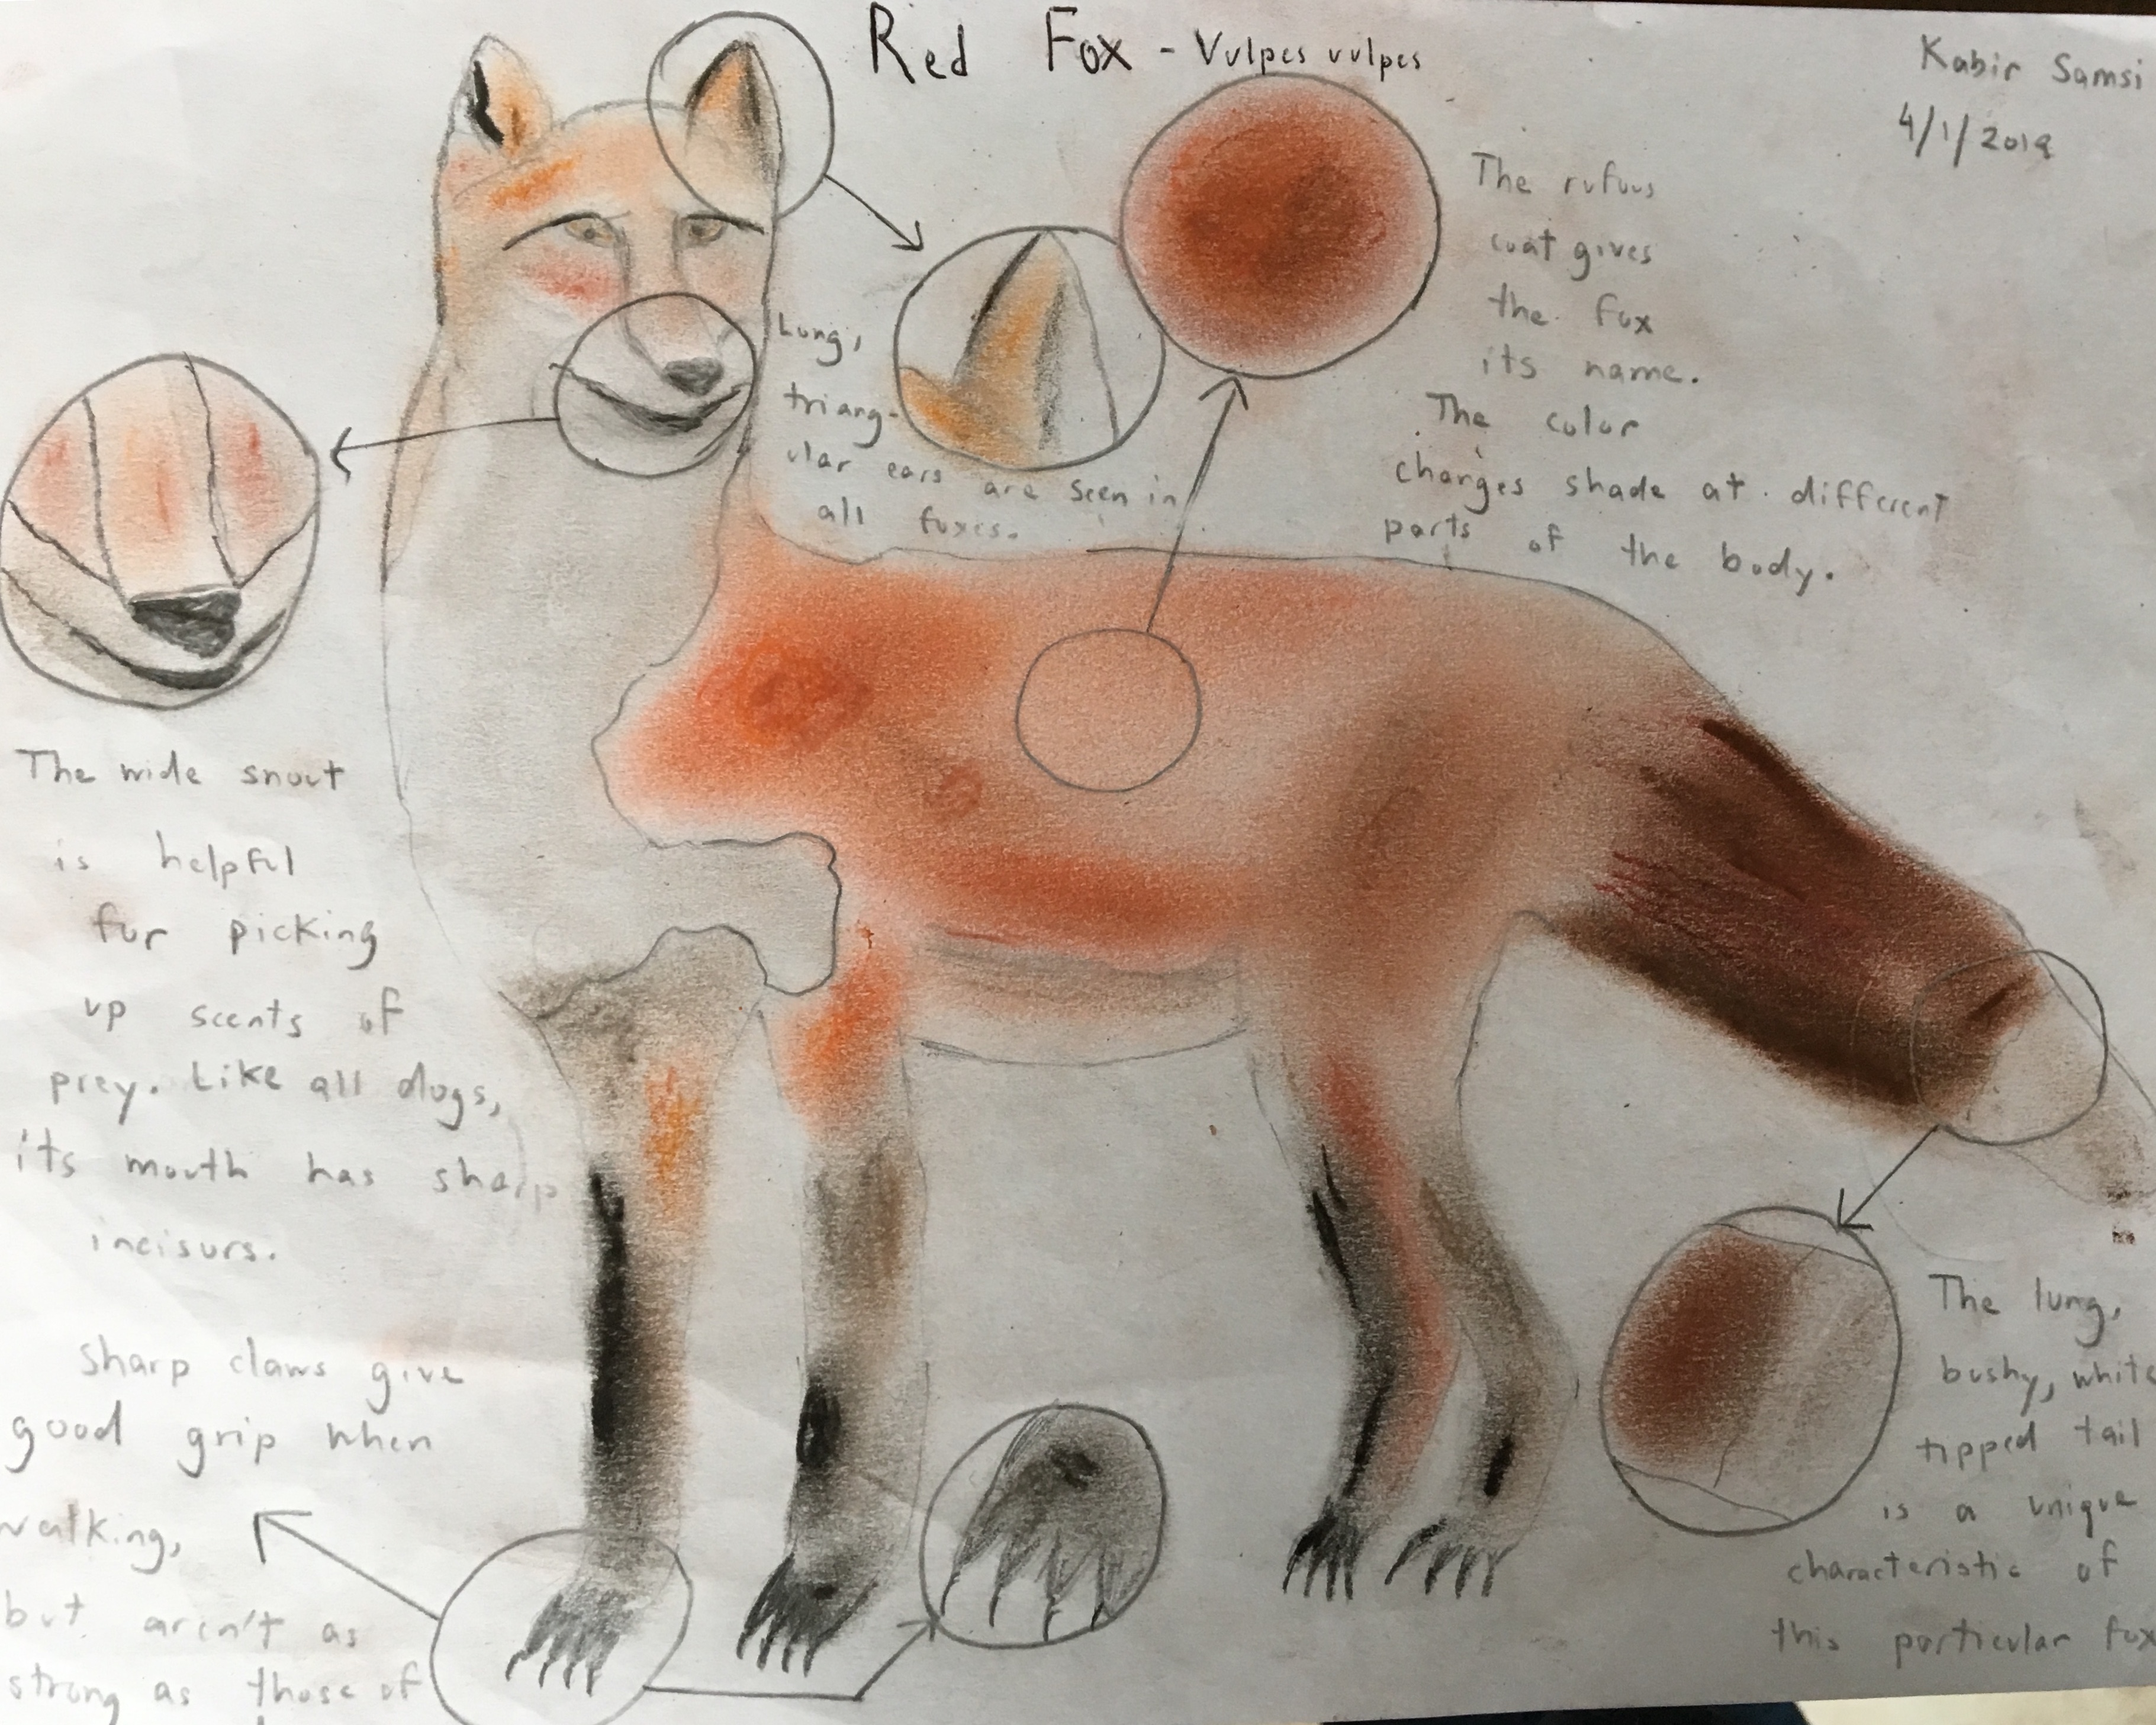 Red Fox - Vulpes vulpes
Kabir Samsi
4/1/2019
The rufous
coat gives
the fox
its name.
The color
changes shade at different
parts of the body.
Long,
triang-
ular ears are seen in
all foxes.
The wide snout
is helpful
for picking
up scents of
prey. Like all dogs,
its mouth has sharp
incisors.
Sharp claws give
good grip when
walking,
but aren't as
strong as those of
The long,
bushy, white
tipped tail
is a unique
characteristic of
this particular fox